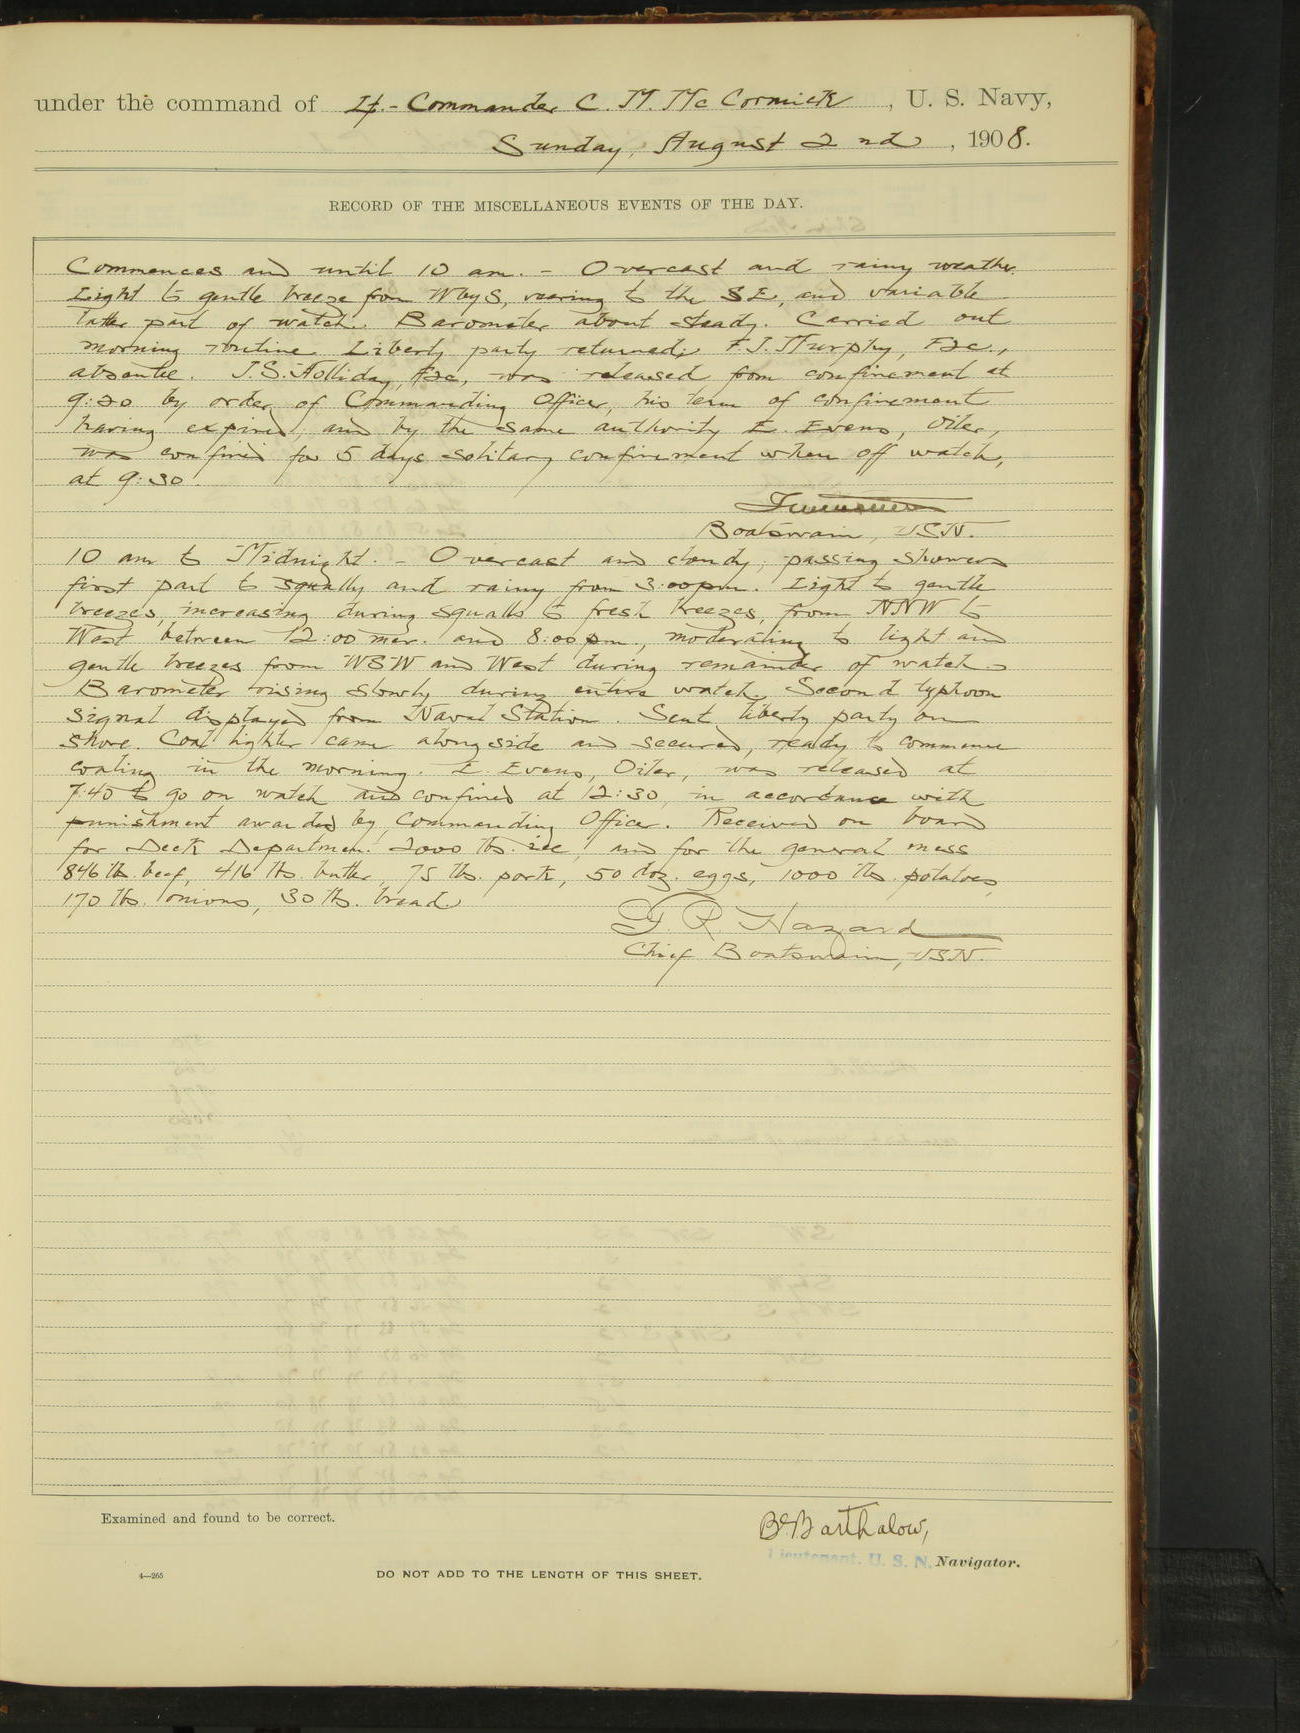 under the command of Lt.-Commander C. M. McCormick, U. S. Navy,
Sunday, August 2nd, 1908.
RECORD OF THE MISCELLANEOUS EVENTS OF THE DAY.
Commences and until 10 am. - Overcast and rainy weather.
Light to gentle breeze from WbyS, veering to the SE, and variable
latter part of watch. Barometer about steady. Carried out
morning routine. Liberty party returned; F.J. Murphy, F2c.,
absentee. J.S. Holliday, F2c, was released from confinement at
9:20 by order of Commanding Officer, his term of confinement
having expired, and by the same authority E. Evens, Oiler,
was confined for 5 days solitary confinement when off watch,
at 9:30.
Boatswain, USN.
10 am to Midnight. - Overcast and cloudy, passing showers
first part to squally and rainy from 3:00 pm. Light to gentle
breezes, increasing during squalls to fresh breezes, from NNW to
West between 12:00 mer. and 8:00 pm, moderating to light and
gentle breezes from WSW and West during remainder of watch.
Barometer rising slowly during entire watch. Second typhoon
signal displayed from Naval Station. Sent liberty party on
shore. Coal lighter came alongside and secured, ready to commence
coaling in the morning. E. Evens, Oiler, was released at
7:40 to go on watch and confined at 12:30, in accordance with
punishment awarded by Commanding Officer. Received on board
for Deck Department 2000 lbs. ice, and for the general mess
846 lbs. beef, 416 lbs. butter, 75 lbs. pork, 50 doz. eggs, 1000 lbs. potatoes,
170 lbs. onions, 30 lbs. bread
G. R. Hazard
Chief Boatswain, USN.
Examined and found to be correct.
B. Barthalow,
Lieutenant. U. S. N. Navigator.
4—265
DO NOT ADD TO THE LENGTH OF THIS SHEET.